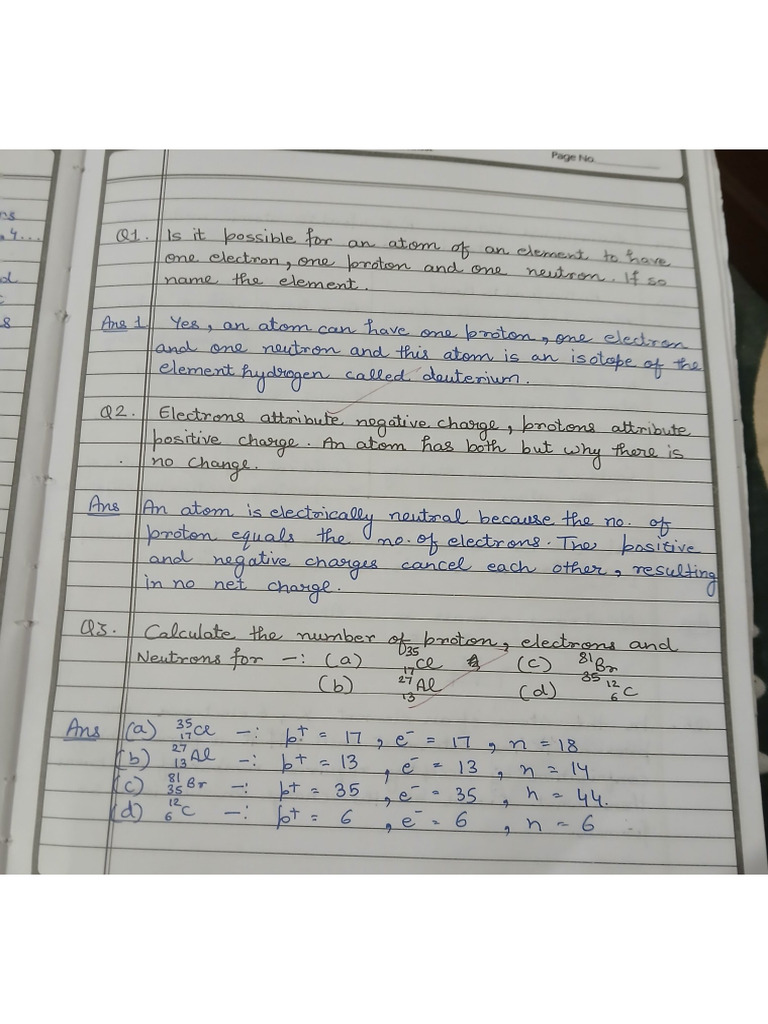 Page No.
ns
4...
d
s
Q1. Is it possible for an atom of an element to have
one electron, one proton and one neutron. If so
name the element.
Ans 1 Yes, an atom can have one proton, one electron
and one neutron and this atom is an isotope of the
element hydrogen called deuterium.
Q2. Electrons attribute negative charge, protons attribute
positive charge. An atom has both but why there is
no change.
Ans An atom is electrically neutral because the no. of
proton equals the no. of electrons. The positive
and negative charges cancel each other, resulting
in no net charge.
Q3. Calculate the number of proton, electrons and
Neutrons for -: (a) ³⁵₁₇Cl (c) ⁸¹₃₅Br
(b) ²⁷₁₃Al (d) ¹²₆C
Ans (a) ³⁵₁₇Cl -: p+ = 17, e⁻ = 17, n = 18
(b) ²⁷₁₃Al -: p+ = 13, e⁻ = 13, n = 14
(c) ⁸¹₃₅Br -: p+ = 35, e⁻ = 35, n = 44.
(d) ¹²₆C -: p+ = 6, e⁻ = 6, n = 6